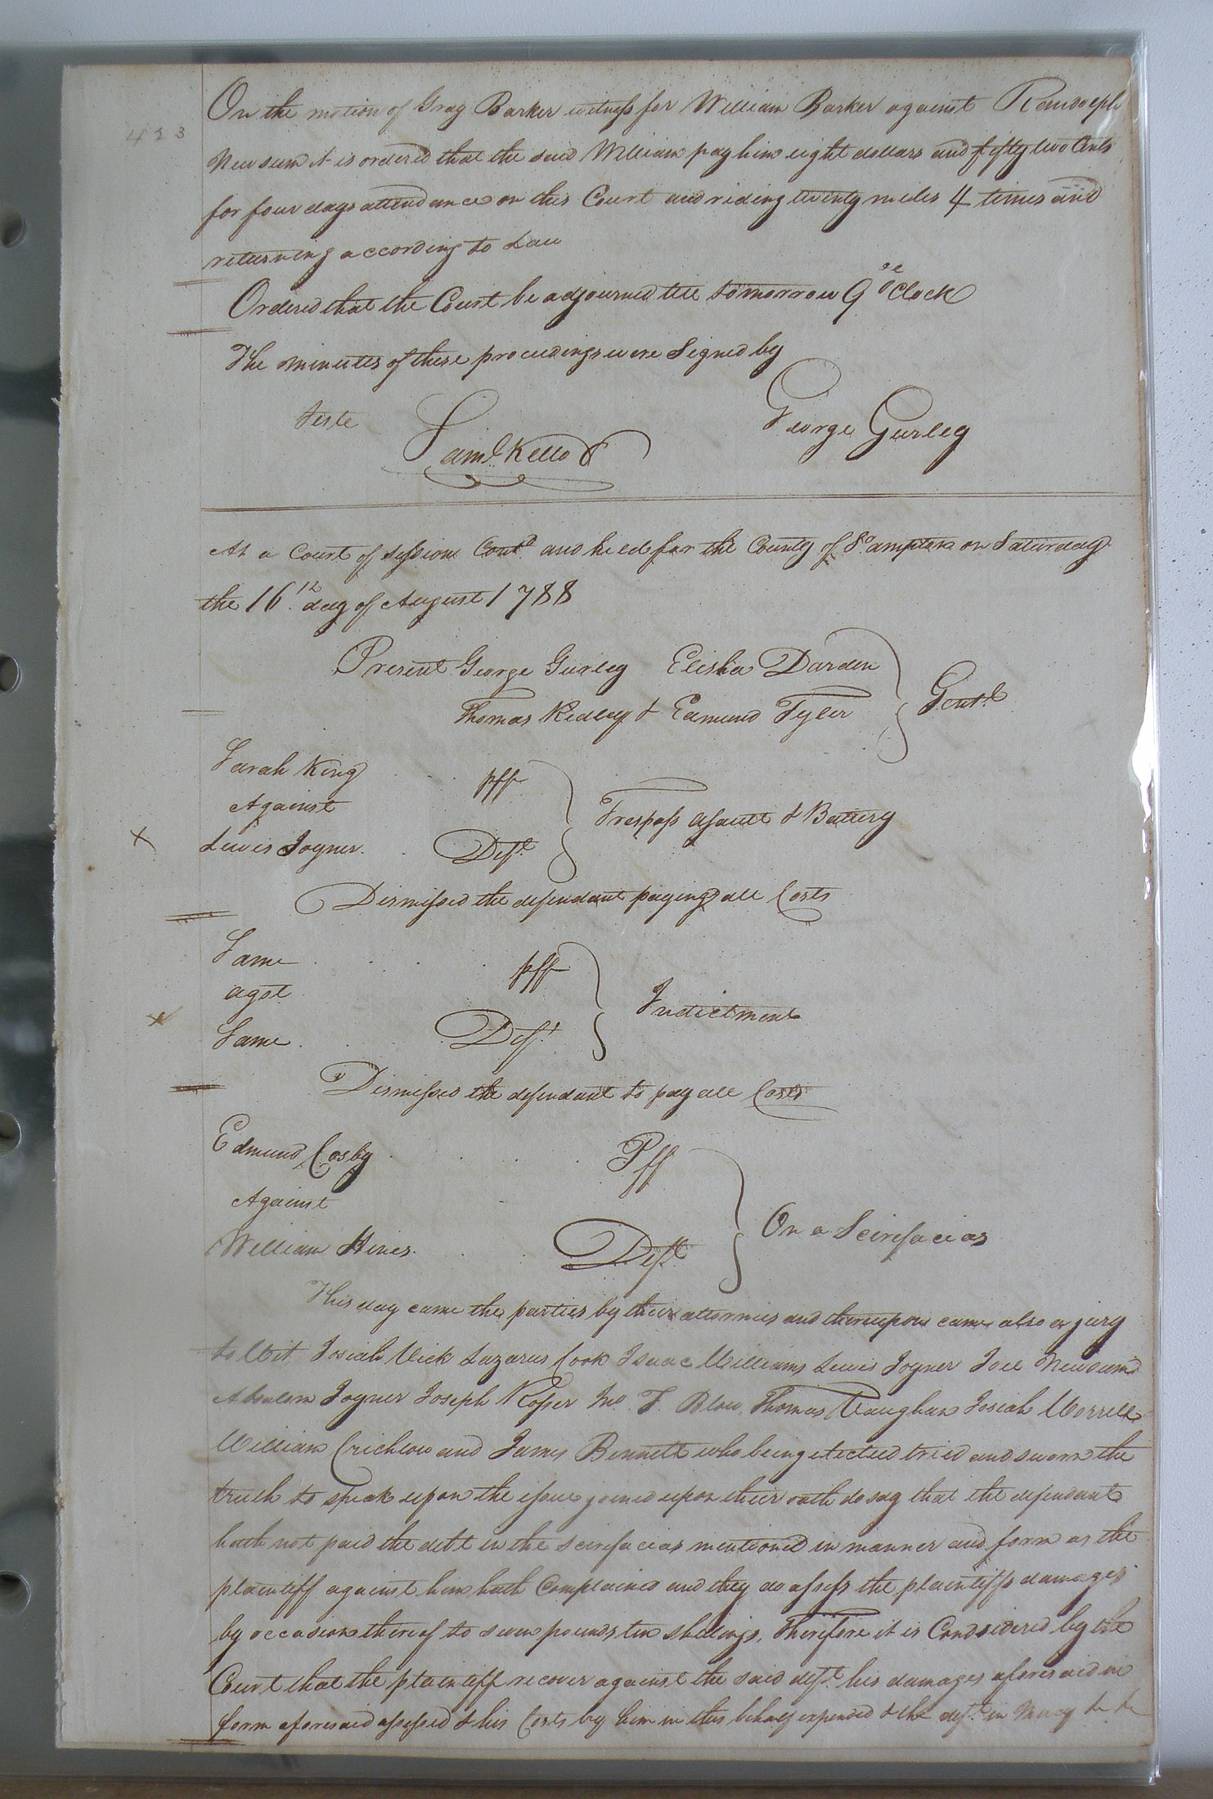 423
On the motion of Gray Barker witness for William Barker against Randolph
Newsum it is ordered that the said William pay him eight dollars and fifty two Cents
for four days attendance on this Court and riding twenty miles 4 times and
returning according to Law
Ordered that the Court be adjourned till tomorrow 9 oClock
The minutes of these proceedings were Signed by
Teste
Saml. Kello
George Gurley
At a Court of Sessions Contd. and held for the County of So.ampton on Saturday
the 16th. day of August 1788
Present George Gurley Elisha Darden
Thomas Ridley & Edmund Tyler
Gentl.
Sarah King pff
Against
Trespass assault & Battery
X Lewis Joyner. Deft.
Dismissed the defendant paying all Costs
Same pff
agst
Indictment
X Same Deft.
Dismissed the defendant to pay all Costs
Edmund Cosby Pff
Against
On a Scirefacias
William Hines. Deft.
This day came the parties by their attornies and thereupon came also a jury
to Wit, Josiah Vick Lazarus Cook Isaac Williams Lewis Joyner Joel Newsum
Absalom Joyner Joseph Roper Jno. T. Blow Thomas Vaughan Josiah Worrell
William Crichlow and James Bennett who being elected tried and sworn the
truth to speak upon the issue joined upon their oath do say that the defendant
hath not paid the debt in the scirefacias mentioned in manner and form as the
plaintiff against him hath Complained and they do assess the plaintiffs damages
by occasion thereof to seven pounds ten shillings, Therefore it is Considered by the
Court that the plaintiff recover against the said deft. his damages aforesaid in
form aforesaid assessed & his Costs by him in this behalf expended & the deft. in Mercy &c &c